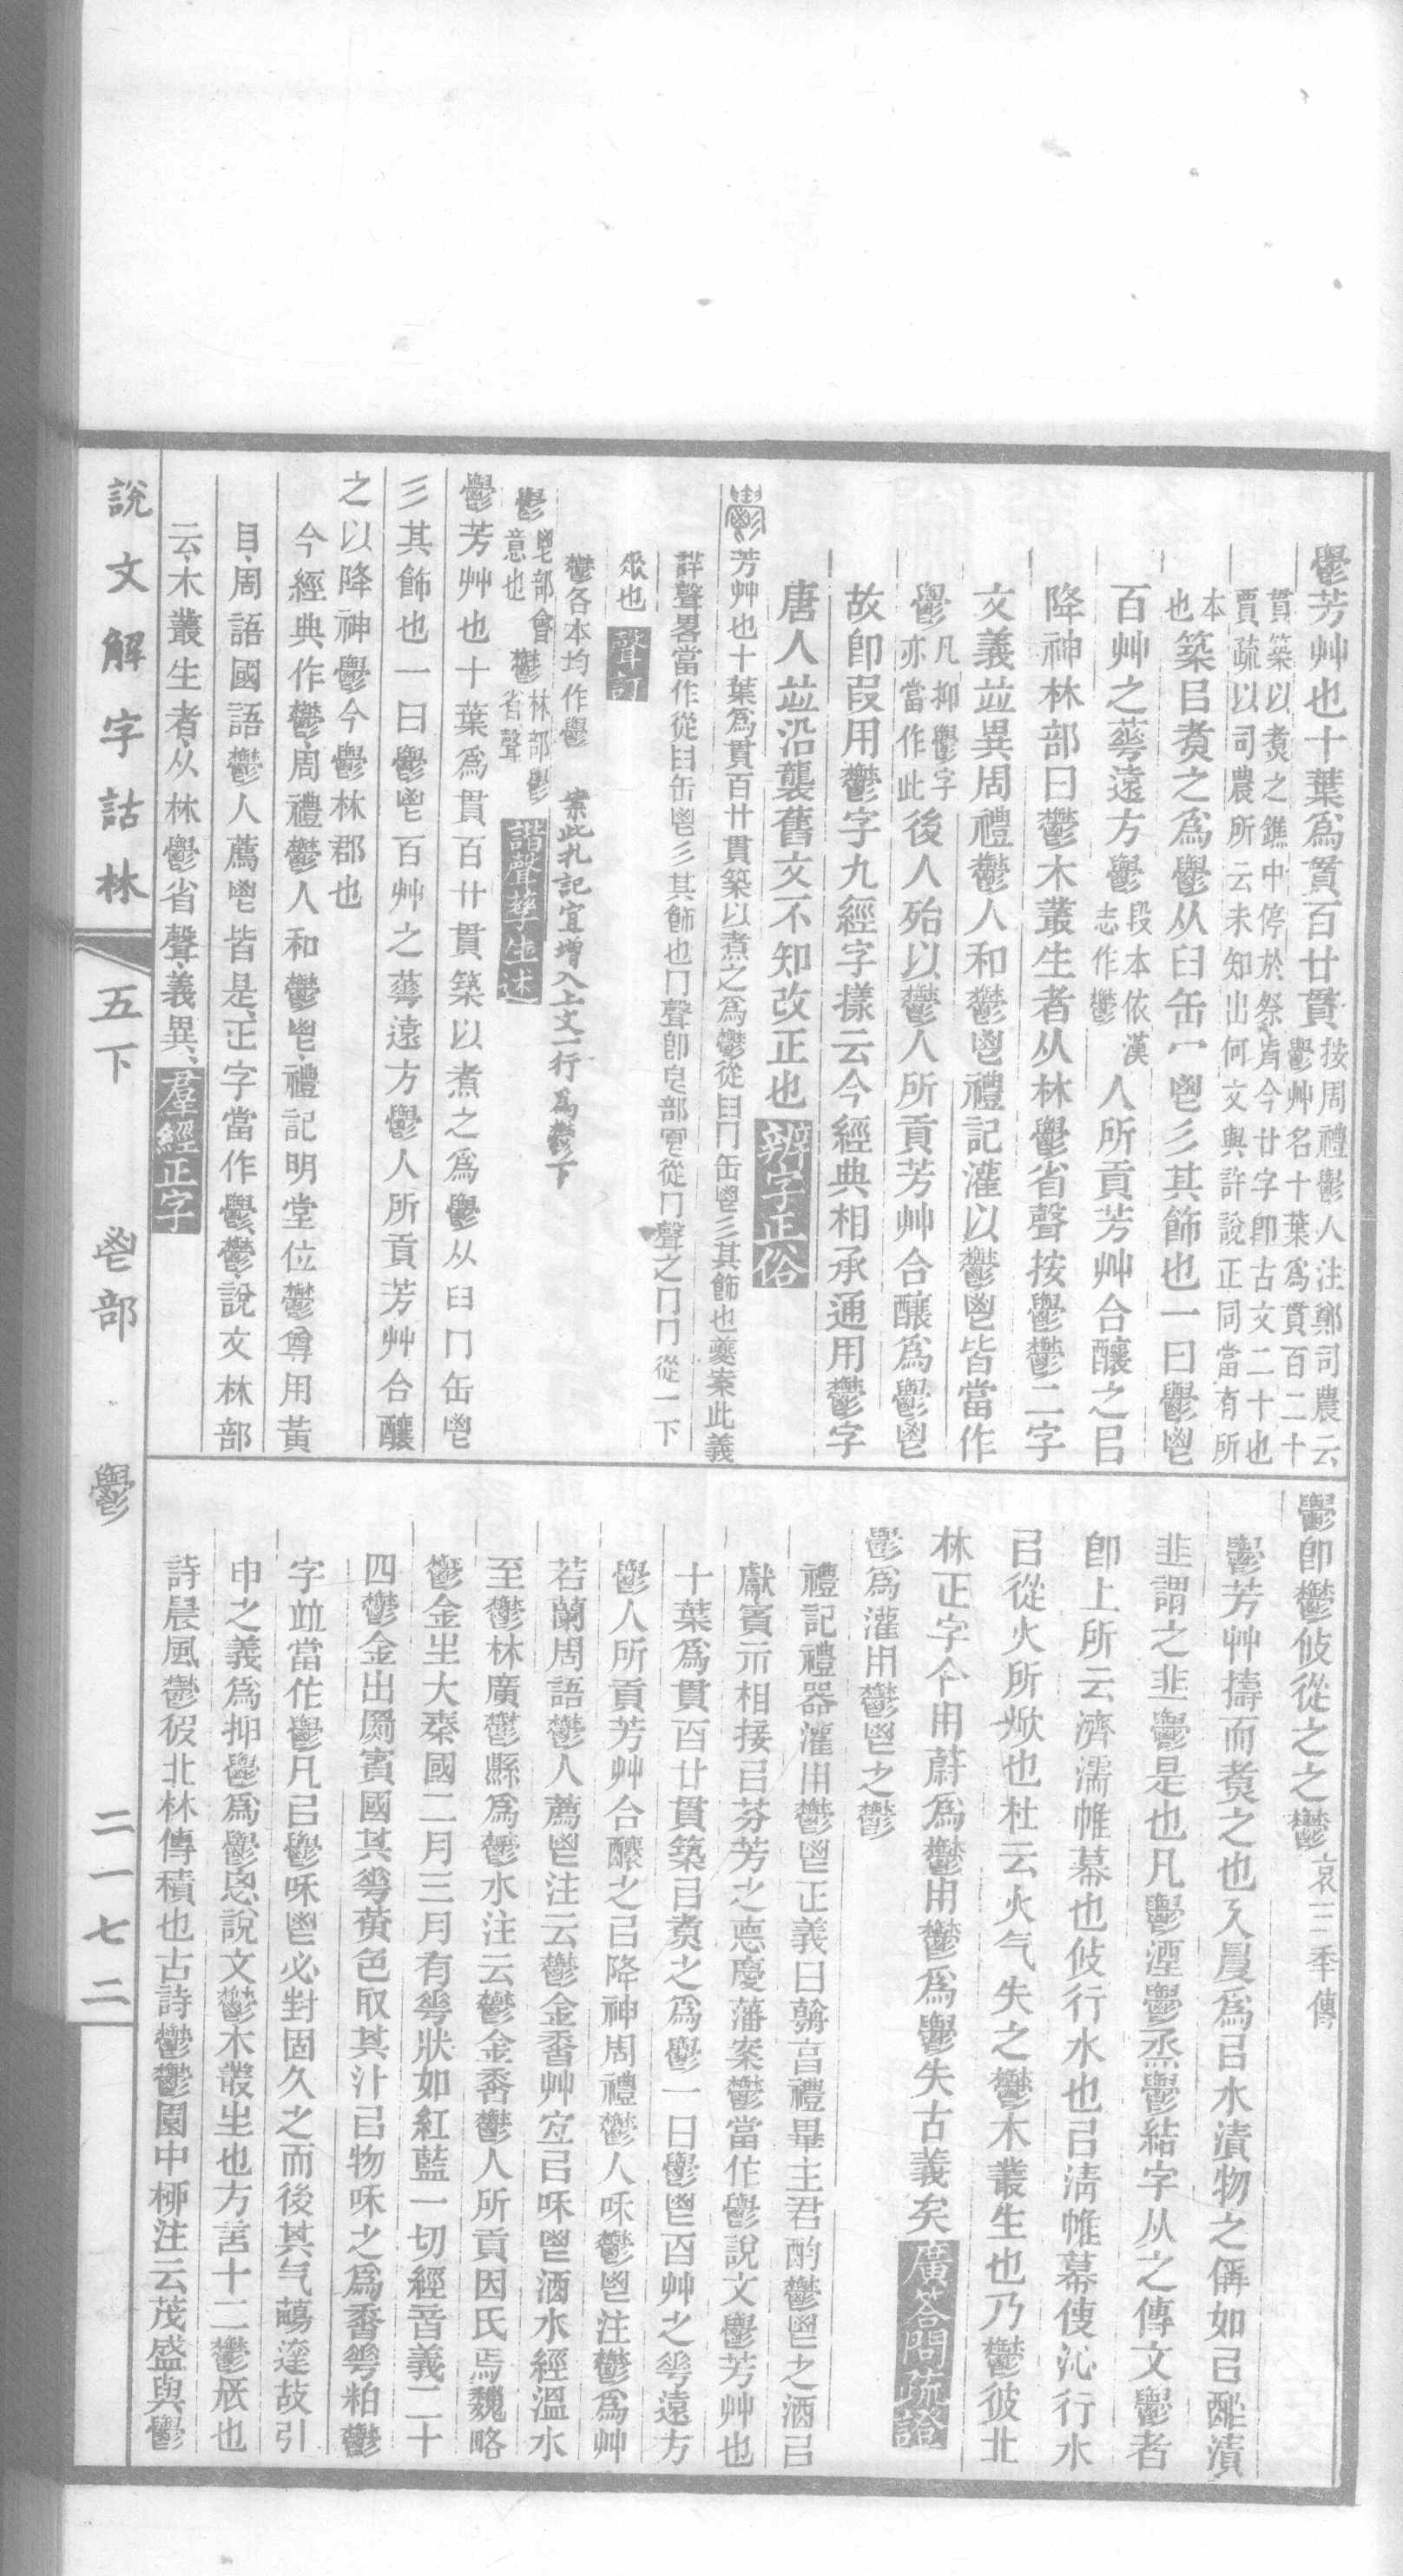 鬱芳艸也十葉爲貫百廿貫按周禮鬱人注鄭司農云鬱艸名十葉爲貫百二十
貫築以煑之鐎中停於祭前今廿字卽古文二十也賈疏以司農所云未知出何文與許說正同當有所
本也築㠯煑之爲鬱从臼缶冖鬯彡其飾也一曰鬱鬯
百艸之蕚遠方鬱段本依漢志作鬱人所貢芳艸合釀之㠯
降神林部曰鬱木叢生者从林鬱省聲按鬱鬱二字
文義竝異周禮鬱人和鬱鬯禮記灌以鬱鬯皆當作
鬱凡抑鬱字亦當作此後人殆以鬱人所貢芳艸合釀爲鬱鬯
故卽叚用鬱字九經字樣云今經典相承通用鬱字
唐人竝沿襲舊文不知改正也辨字正俗
芳艸也十葉爲貫百廿貫築以煮之爲鬱從臼冂缶鬯彡其飾也夔案此義
詳聲畧當作從臼缶鬯彡其飾也冂聲卽皀部冟從冂聲之冂冂從一下
㸑也聲訂
鬱各本均作鬱 案此札記宜增入上文一行爲鬱下
鬱鬯部會意也鬱林部鬱省聲諧聲孳生述
鬱芳艸也十葉爲貫百廿貫築以煮之爲鬱从臼冂缶鬯
彡其飾也一曰鬱鬯百艸之蕚遠方鬱人所貢芳艸合釀
之以降神鬱今鬱林郡也
今經典作鬱周禮鬱人和鬱鬯禮記明堂位鬱尊用黃
目周語國語鬱人薦鬯皆是正字當作鬱鬱說文林部
云木叢生者从林鬱省聲義異羣經正字
鬱卽鬱攸從之之鬱哀三秊傳
鬱芳艸擣而煑之也又㬪爲㠯水漬物之偁如㠯醯漬
韭謂之韭鬱是也凡鬱湮鬱烝鬱結字从之傳文鬱者
卽上所云濟濡帷幕也攸行水也㠯淸帷幕使沁行水
㠯從火所焮也杜云火气失之鬱木叢生也乃鬱彼北
林正字今用蔚爲鬱用鬱爲鬱失古義矣廣答問疏證
鬱爲灌用鬱鬯之鬱
禮記禮器灌用鬱鬯正義曰朝亯禮畢主君酌鬱鬯之酒㠯
獻賓示相接㠯芬芳之悳慶藩案鬱當作鬱說文鬱芳艸也
十葉爲貫百廿貫築㠯煑之爲鬱一曰鬱鬯百艸之蕚遠方
鬱人所貢芳艸合釀之㠯降神周禮鬱人咊鬱鬯注鬱爲艸
若蘭周語鬱人薦鬯注云鬱金香艸宐㠯咊鬯酒水經溫水
至鬱林廣鬱縣爲鬱水注云鬱金香鬱人所貢因氏焉魏略
鬱金生大秦國二月三月有蕚狀如紅藍一切經音義二十
四鬱金出罽賓國其蕚黃色取其汁㠯物咊之爲香蕚粕鬱
字竝當作鬱凡㠯鬱咊鬯必封固久之而後其气蕩達故引
申之義爲抑鬱爲鬱悤說文鬱木叢生也方言十二鬱㞋也
詩晨風鬱彼北林傳積也古詩鬱鬱園中柳注云茂盛與鬱
說文解字詁林 五下 鬯部 鬱 二一七二